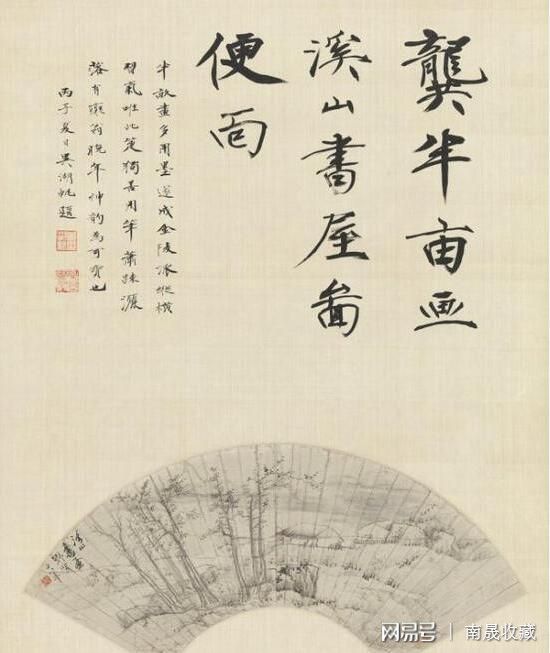 龔半亩画
溪山書屋啚
便面
半畝畫多用墨遂成金陵派縱橫
習氣唯此箑獨善用筆蕭疎灑
落有癡翁晚年神韵為可寶也
丙子夏日吳湖帆題
網易号 | 南晟收藏